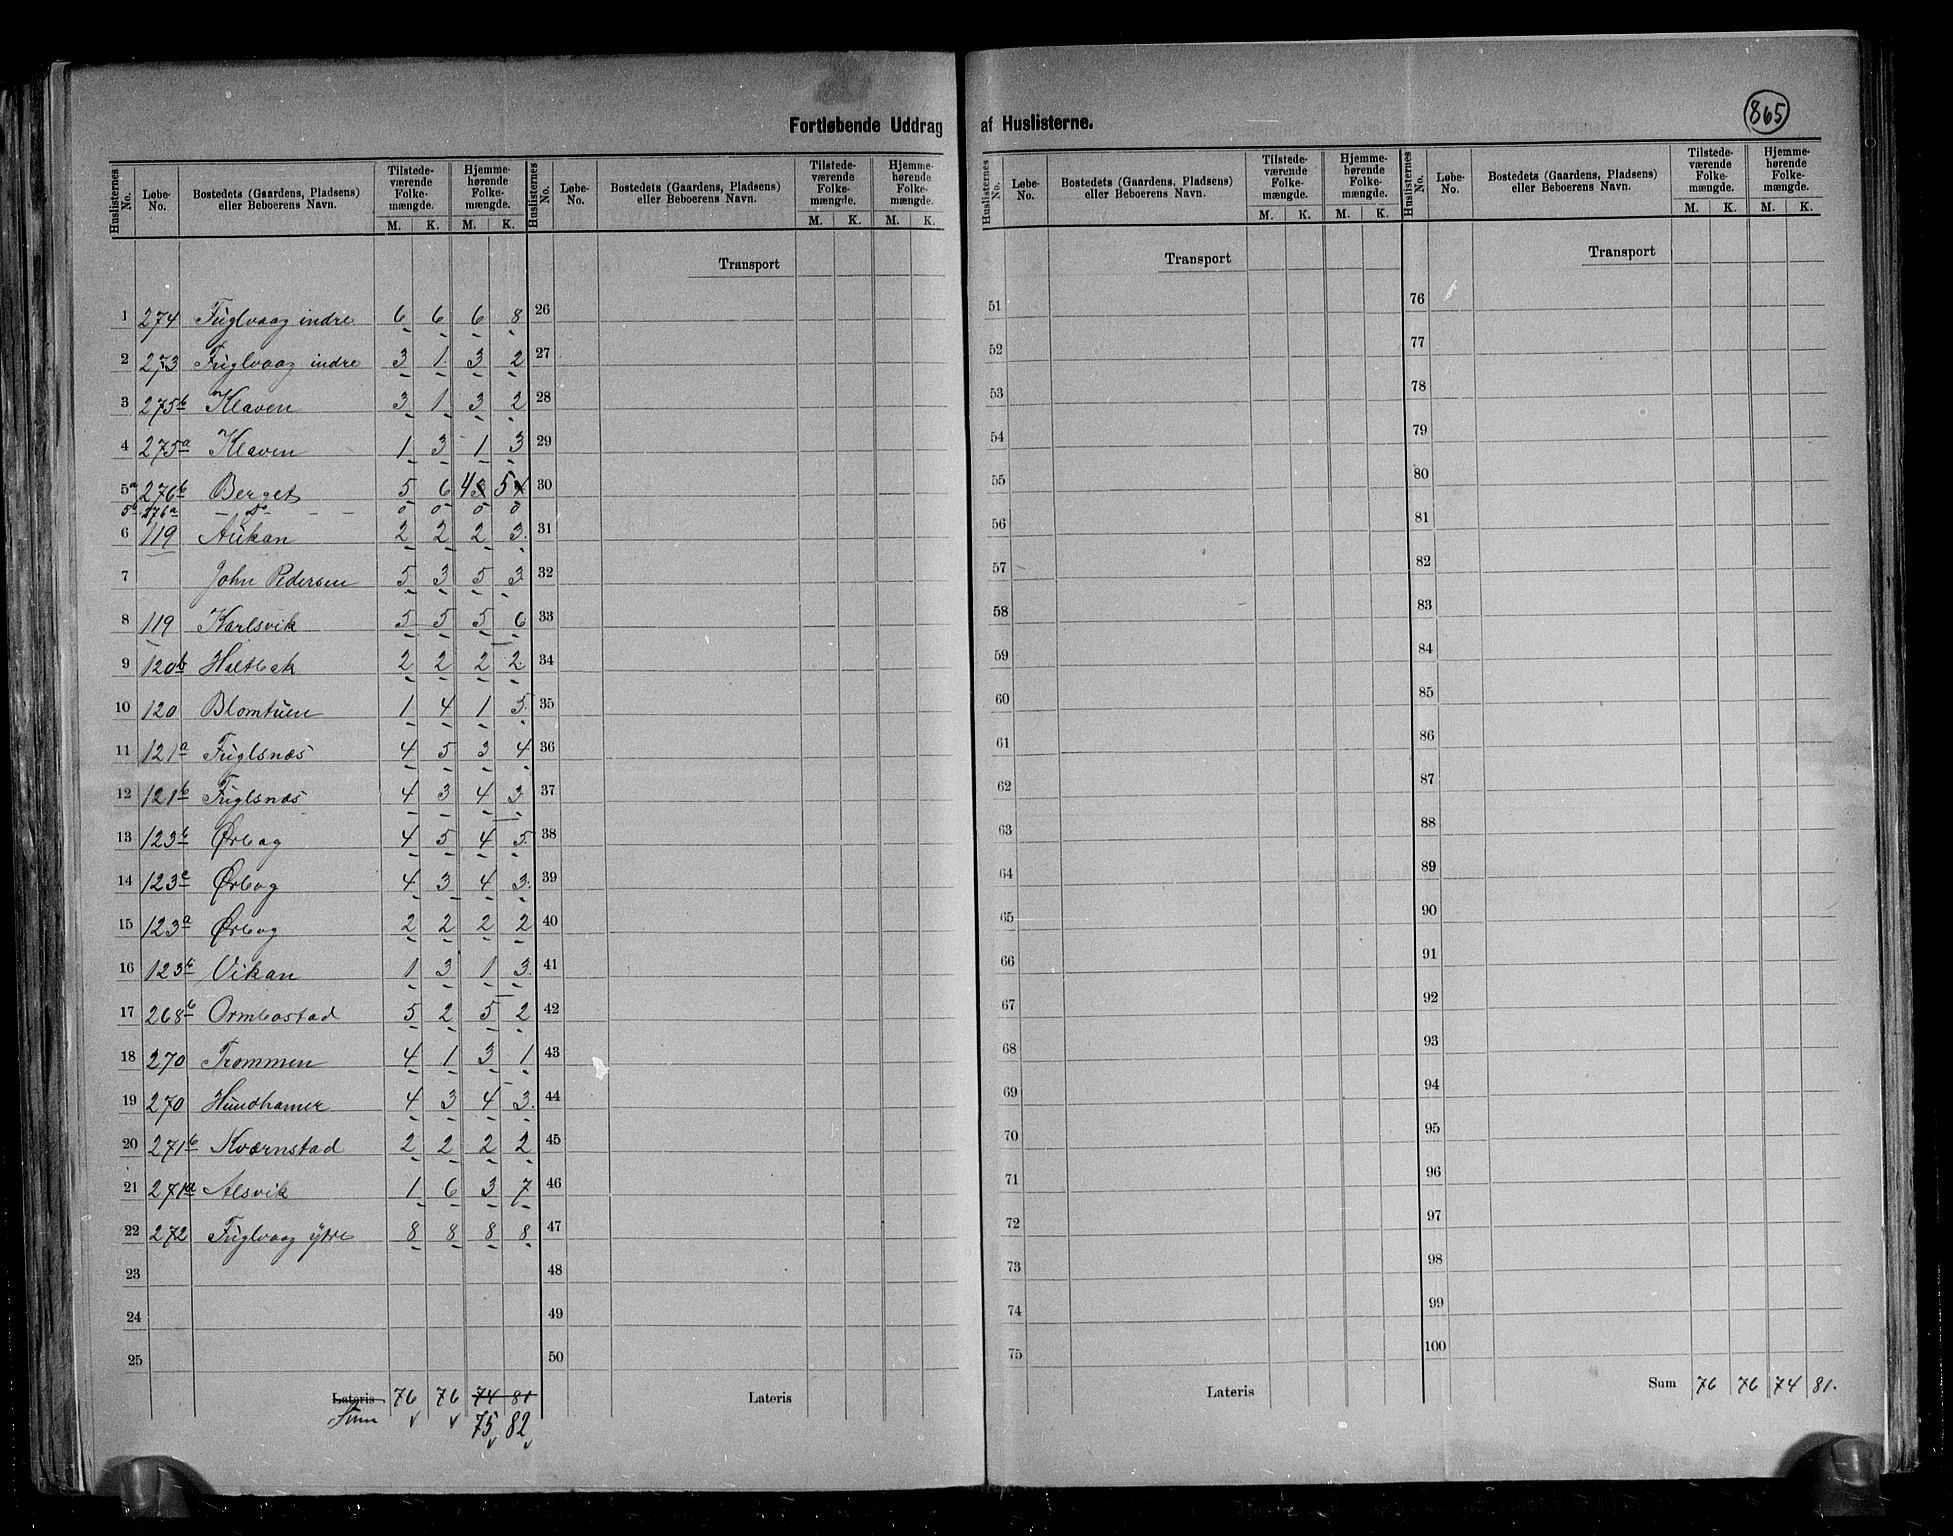 865
Fortløbende Uddrag af Huslisterne.
Huslisternes No. Løbe-No. Bostedets (Gaardens, Pladsens) eller Beboerens Navn. Tilstede-værende Folke-mængde. M. K. Hjemme-hørende Folke-mængde. M. K.
Huslisternes No. Løbe-No. Bostedets (Gaardens, Pladsens) eller Beboerens Navn. Tilstede-værende Folke-mængde. M. K. Hjemme-hørende Folke-mængde. M. K.
Huslisternes No. Løbe-No. Bostedets (Gaardens, Pladsens) eller Beboerens Navn. Tilstede-værende Folke-mængde. M. K. Hjemme-hørende Folke-mængde. M. K.
Huslisternes No. Løbe-No. Bostedets (Gaardens, Pladsens) eller Beboerens Navn. Tilstede-værende Folke-mængde. M. K. Hjemme-hørende Folke-mængde. M. K.
Transport Transport Transport
1 274 Fuglvaag indre 6 6 6 8 26 51 76
2 273 Fuglvaag indre 3 1 3 2 27 52 77
3 275b Klaven 3 1 3 2 28 53 78
4 275a Klaven 1 3 1 3 29 54 79
5a 276b Berget 5 6 43 54 30 55 80
5b 276a - do - - 0 0 0 0
6 119 Aukan 2 2 2 3. 31 56 81
7 John Pedersen 5 3 5 3. 32 57 82
8 119 Karlsvik 5 5 5 6 33 58 83
9 120b Holtbak 2 2 2 2. 34 59 84
10 120 Blomtuen 1 4 1 5. 35 60 85
11 121a Fuglsnæs 4 5 3 4 36 61 86
12 121b Fuglsnæs 4 3 4 3 37 62 87
13 123b Ørbog 4 5 4 5. 38 63 88
14 123c Ørbog 4 3 4 3. 39 64 89
15 123a Ørbog 2 2 2 2 40 65 90
16 123b Vikan 1 3 1 3. 41 66 91
17 268b Ormbostad 5 2 5 2 42 67 92
18 270 Trommen 4 1 3 1 43 68 93
19 270 Hundhamer 4 3 4 3. 44 69 94
20 271b Kværnstad 2 2 2 2 45 70 95
21 271a Alsvik 1 6 3 7 46 71 96
22 272 Fuglvaag ytre 8 8 8 8 47 72 97
23 48 73 98
24 49 74 99
25 50 75 100
Lateris 76 76 74 81 Lateris Lateris Sum 76 76 74 81.
Sum 75 82